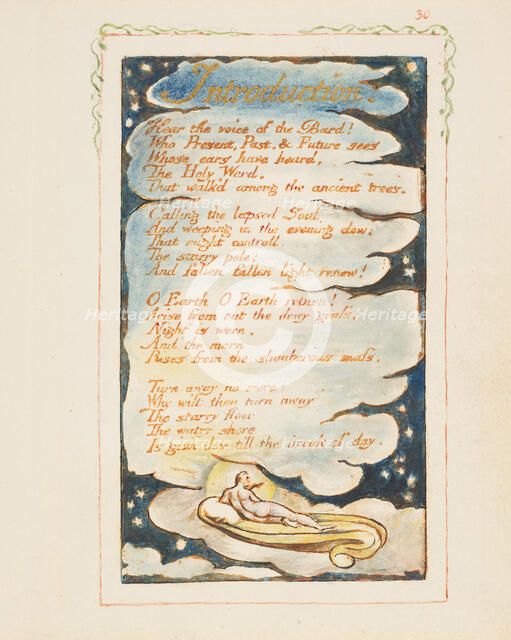 30
Introduction.
Hear the voice of the Bard!
Who Present, Past, & Future sees
Whose ears have heard,
The Holy Word,
That walk'd among the ancient trees.
Calling the lapsed Soul
And weeping in the evening dew:
That might controll.
The starry pole:
And fallen fallen light renew!
O Earth O Earth return!
Arise from out the dewy grass;
Night is worn,
And the morn
Rises from the slumberous mass.
Turn away no more:
Why wilt thou turn away
The starry floor
The watry shore
Is giv'n thee till the break of day.
Heritage
Heritage
Heritage
Heritage